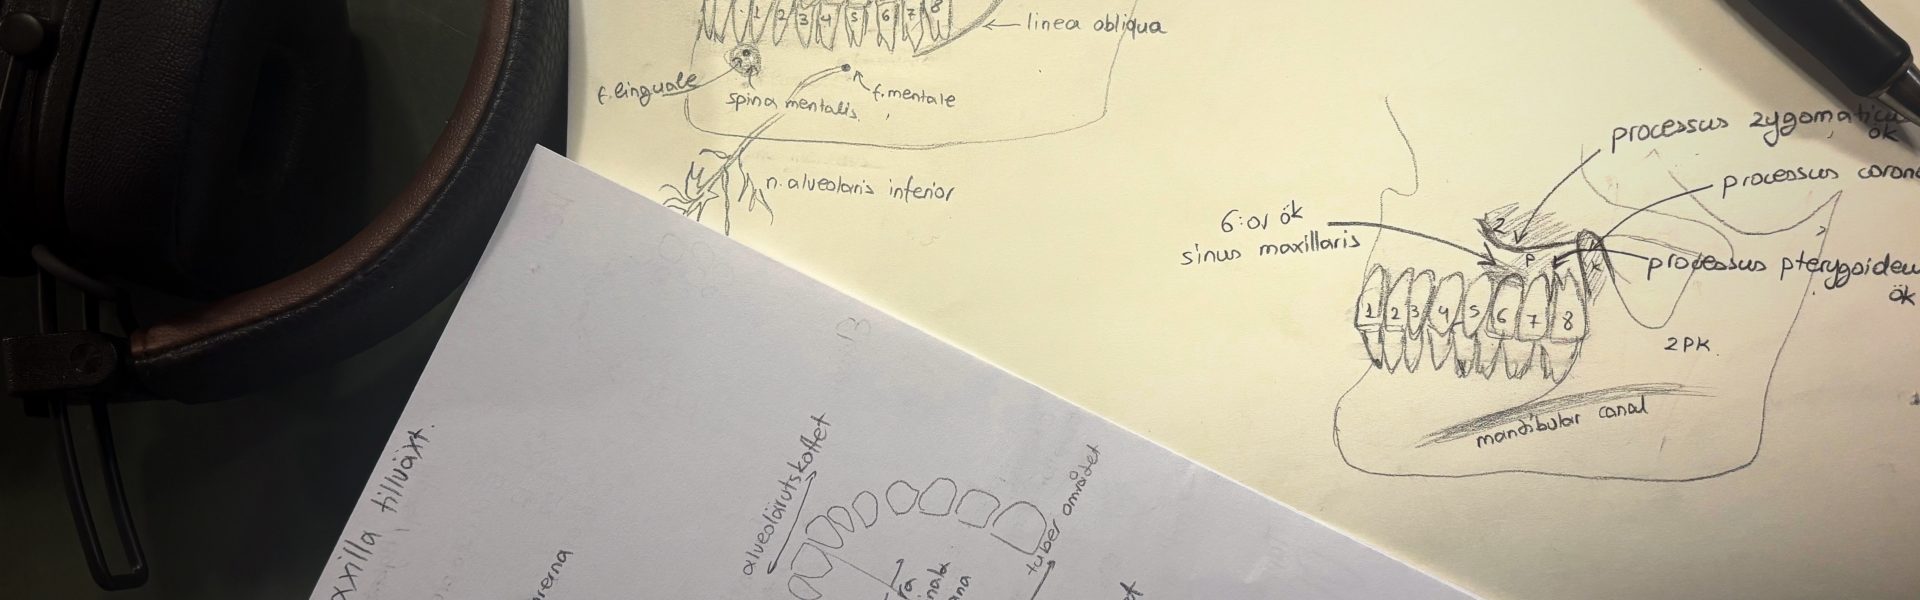 1 2 3 4 5 6 7 8
linea obliqua
f. linguale
spina mentalis
f. mentale
n. alveolaris inferior
processus
ök
processus
6:or ök
sinus maxillaris
2
P
K
processus
ök
1 2 3 4 5 6 7 8
2PK.
mandibular canal
tillväxt.
alveolärutskottet
tuber området